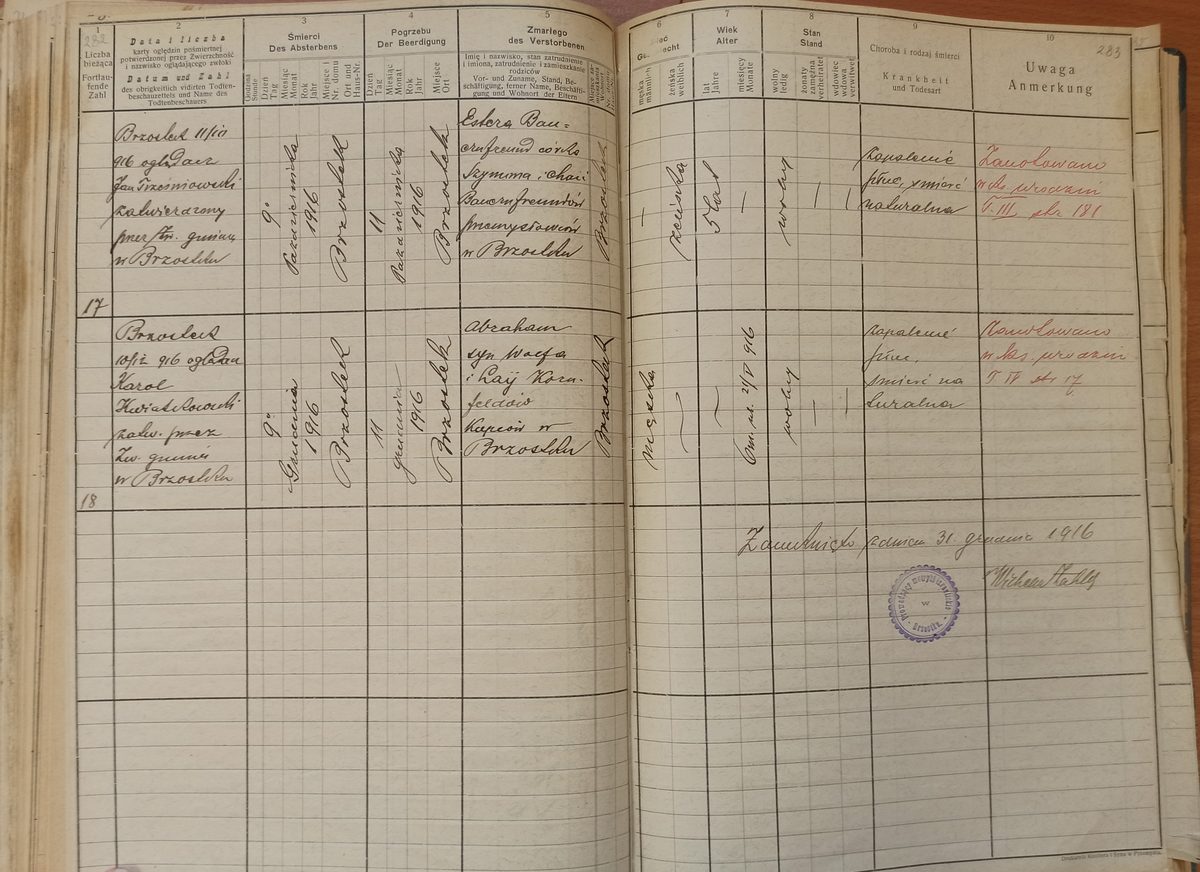 282
1
Liczba
bieżąca
Fortlau-
fende
Zahl
2
Data i liczba
karty oględzin pośmiertnej
potwierdzonej przez Zwierzchność
i nazwisko oglądającego zwłoki
Datum und Zahl
des obrigkeitlich vidirten Todten-
beschauzettels und Name des
Todtenbeschauers
3
Śmierci
Des Absterbens
Godzina
Stunde
Dzień
Tag
Miesiąc
Monat
Rok
Jahr
Miejsce i
Nr. domu
Ort und
Haus-Nr.
4
Pogrzebu
Der Beerdigung
Dzień
Tag
Miesiąc
Monat
Rok
Jahr
Miejsce
Ort
5
Zmarłego
des Verstorbenen
Imię i nazwisko, stan zatrudnienie
i imiona, zatrudnienie i zamieszkanie
rodziców
Vor- und Zuname, Stand, Be-
schäftigung, ferner Name, Beschäfti-
gung und Wohnort der Eltern
6
Płeć
męska
männlich
żeńska
weiblich
7
Wiek
Alter
lat
Jahre
miesięcy
Monate
8
Stan
Stand
wolny
ledig
żonaty
zamężna
verheiratet
wdowiec
wdowa
verwitwet
9
Choroba i rodzaj śmierci
Krankheit
und Todesart
10
Uwaga
Anmerkung
283
Brzostek 11/10
916 oglądacz
Jan Trześniowski
zatwierdzony
przez Zw. gminną
w Brzostku
9º
Października
1916
Brzostek
11
Października
1916
Brzostek
Estera Bau-
ernfreund córka
Szymona i Chai
Bauernfreundów
przemysłowców
w Brzostku
Brzostek
—
żeńska
5 lat
—
wolny
—
—
zapalenie
płuc, śmierć
naturalna
Zanotowano
w ks. urodzin
T. III. str 181
17
Brzostek
10/12 916 oglądacz
Karol
Kwiatkowski
zatw. przez
Zw. gminną
w Brzostku
9º
Grudnia
1916
Brzostek
11
grudnia
1916
Brzostek
Abraham
syn Wolfa
i Łaji Korn-
feldów
kupców w
Brzostku
Brzostek
męska
—
—
6 m. ur. 21/V 916
wolny
—
—
zapalenie
płuc
śmierć na
turalna
Zanotowano
w ks. urodzin
T IV str 17
18
Zamknięto z dniem 31. grudnia 1916
Prowadzący metryki izraelickie
w
Brzostku.
Drukarnia Knollera i Syna w Przemyślu.